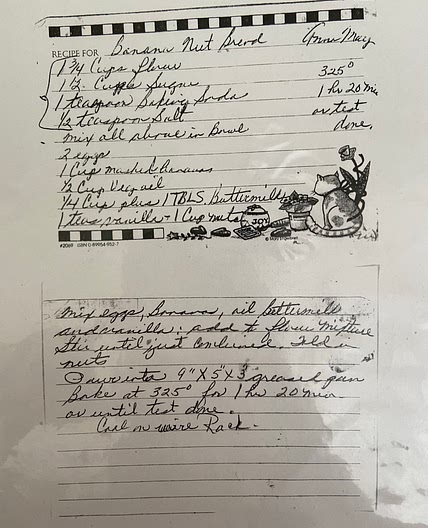 RECIPE FOR Banana Nut Bread Anna Mary
1 3/4 Cups flour
1 1/2 Cups Sugar 325°
1 teaspoon Baking Soda 1 hr 20 min
1/2 teaspoon Salt or test
mix all above in Bowl done.
2 eggs
1 Cup mashed Bananas
1/2 Cup Veg oil
1/4 Cup plus 1 TBLS. Buttermilk
1 teas. vanilla - 1 Cup nuts
JOY
#2069 ISBN 0-89954-952-7
mix eggs, Bananas, oil buttermilk
and vanilla: add to flour mixture
Stir until just combined. Fold in
nuts
Pour into 9" X 5" X 3" greased pan
Bake at 325° for 1 hr 20 min
or until test done.
Cool on wire Rack.